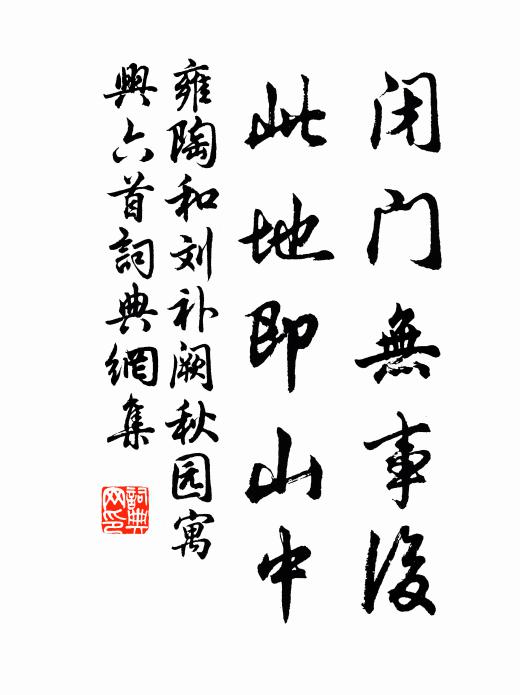 闭门無事後
此地即山中
雍陶和刘补阙秋园寓
興六首詞典網集
詞典网印